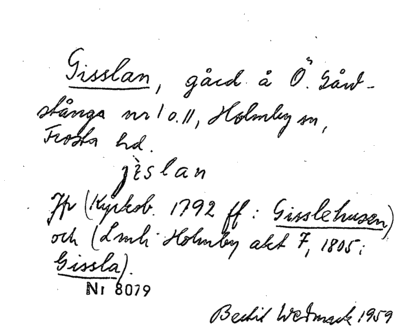 Gisslan, gård å Ö. Gård-
stånga nr 1 o. 11, Holmby sn,
Frosta hd.
jislan
Jfr (Kyrkob. 1792 ff: Gisslehusen)
och (Lmh Holmby akt 7, 1805:
Gissla).
Nr 8079
Bertil Wedmark 1959